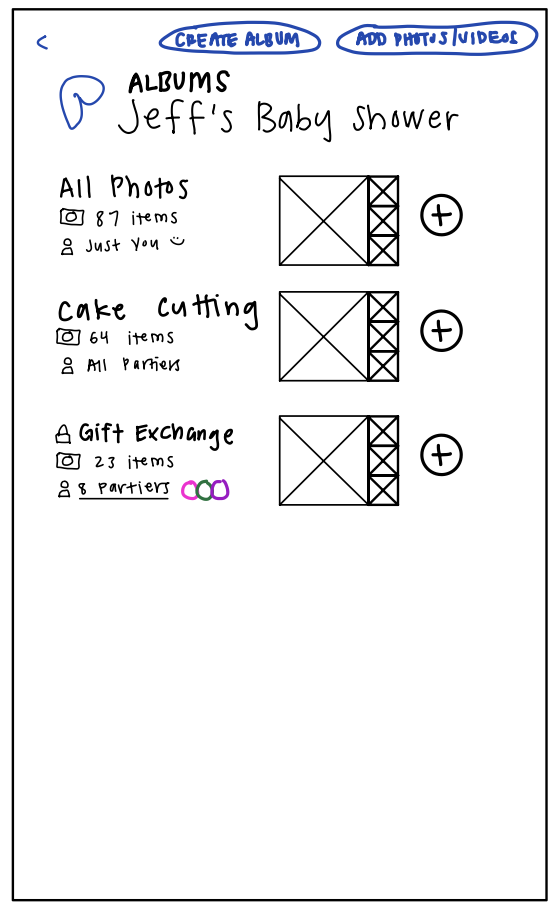 <
CREATE ALBUM
ADD PHOTOS/VIDEOS
ALBUMS
Jeff's Baby Shower
All Photos
87 items
Just You
Cake Cutting
64 items
All Partiers
Gift Exchange
23 items
8 Partiers